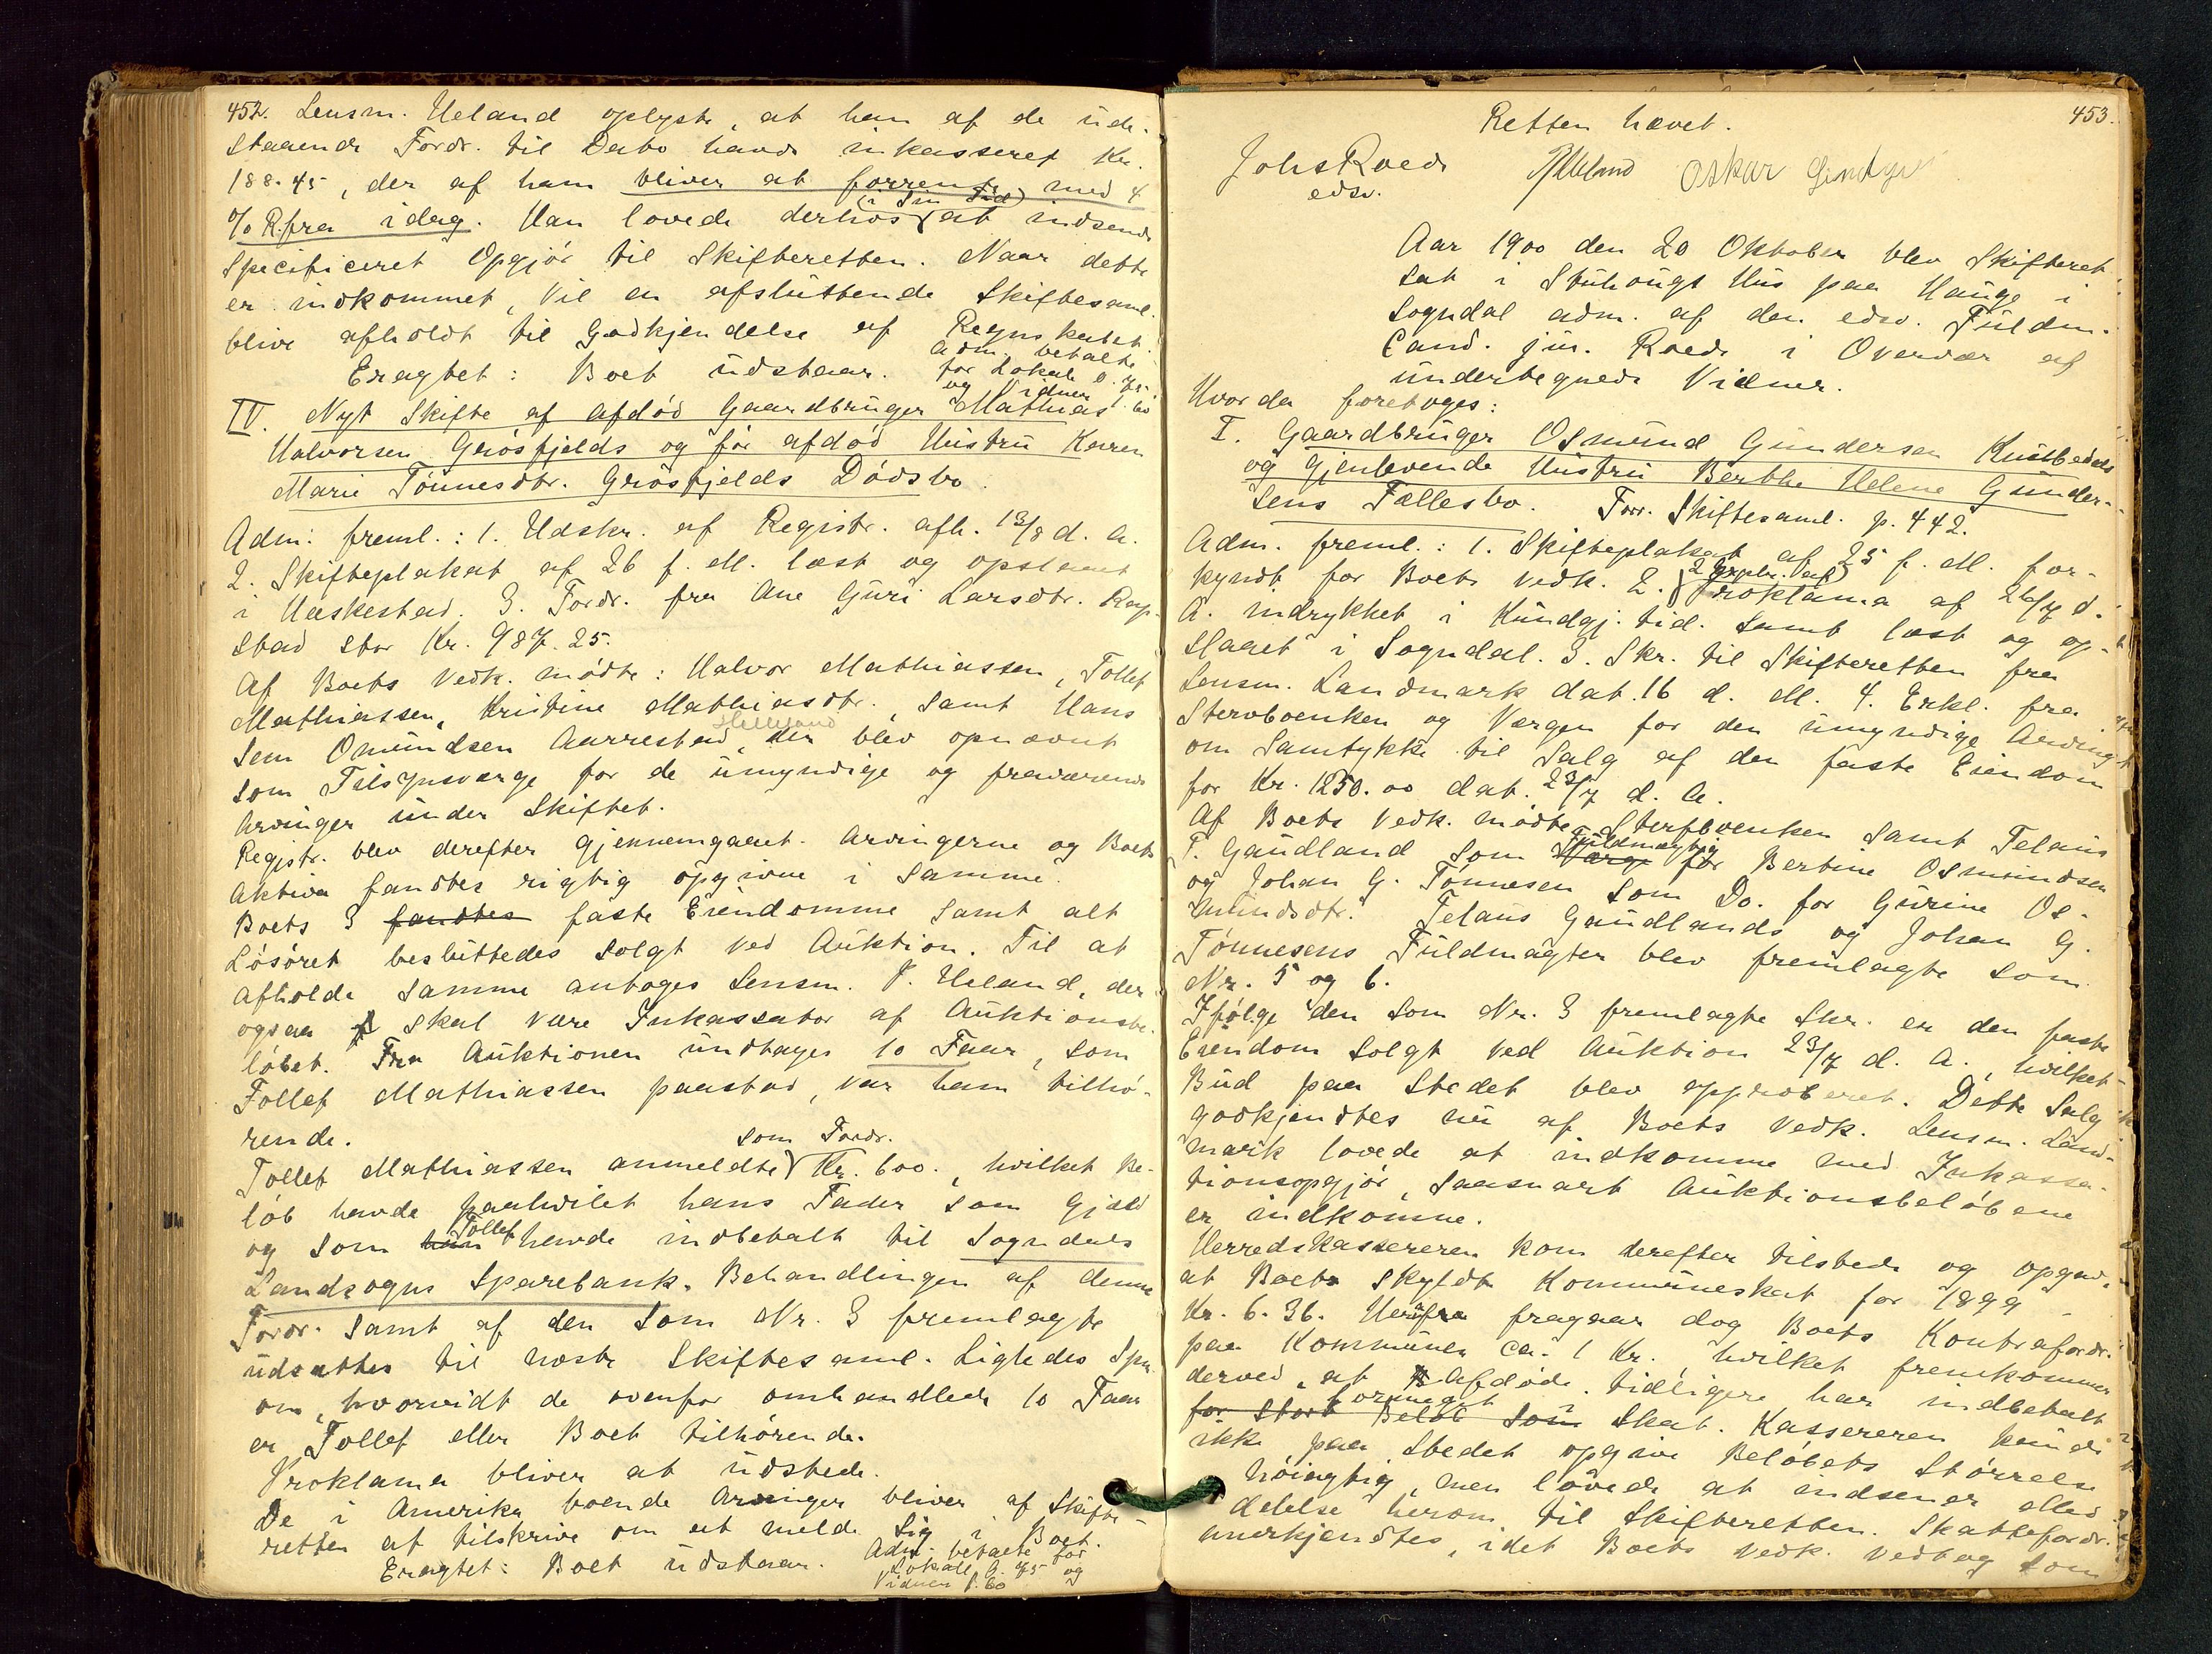 452. Lensm. Ueland oplyste, at han af de ude-
staaende Fordr. til Dato havde inkasseret Kr.
188.45, der af ham bliver at forrente med 4
% R. fra idag. Han lovede derhos (i Sin Tid) at indsende
specificeret Opgjör til Skifteretten. Naar dette
er indkommet, vil en afsluttende Skiftesaml.
blive afholdt til Godkjendelse af Regnskabet
Eragtet: Boet udstaar. Adm. betalte
for Lokale 0.75
og Vidner 1.60
IV. Nyt Skifte af afdød Gaardbruger Mathias
Halvorsen Grösfjelds og før afdød Hustru Karen
Marie Tönnesdtr. Grösfjelds Dödsbo.
Adm. freml.: 1. Udskr. af Registr. afh. 13/8 d. A.
2. Skifteplakat af 26 f. M. læst og opslaaet
i Haskestad. 3. Fordr. fra Ane Guri Larsdtr. Rap-
stad stor Kr. 987.25.
Af Boets Vedk. mödte: Halvor Mathiassen, Tollef
Mathiassen, Kristine Mathiasdtr., samt Hans
Sem Omundsen Aarrestad, Helleland der blev opnævnt
som Tilsynsværge for de umyndige og fraværende
Arvinger under Skiftet.
Registr. blev derefter gjennemgaaet. Arvingerne og Boets
Aktiva fandtes rigtig opgivne i Samme.
Boets 3 fandtes faste Eiendomme samt alt
Lösöret besluttedes solgt ved Auktion. Til at
afholde samme antoges Lensm. P. Ueland, der
ogsaa skal være Inkassator af Auktionsbe-
löbet. Fra Auktionen undtages 10 Faar, som
Tollef Mathiassen paastod, var ham tilhö-
rende.
Tollef Mathiassen anmeldte som Fordr. Kr. 600., hvilket Be-
löb havde paahvilet hans Fader som Gjæld
og som han Tollef havde indbetalt til Sogndals
Landsogns Sparebank. Behandlingen af denne
Fordr. samt af den som Nr. 3 fremlagte
udsattes til næste Skiftesaml. Ligeledes Spm.
om, hvorvidt de ovenfor omhandlede 10 Faar
er Tollef eller Boet tilhörende.
Proklama bliver at udstede.
De i Amerika boende Arvinger bliver af Skifte-
retten at tilskrive om at melde Sig i Boet.
Eragtet: Boet udstaar. Adm. betalte for
Lokale 0.75 og
Vidner 1.60
453.
Retten hævet.
Johs Roede
edsv.
PUeland Oskar
Aar 1900 den 20 Oktober blev Skifteret
sat i Stuhaugs Hus paa Hauge i
Sogndal adm. af den edsv. Fuldm.
Cand. jur. Roede i Overvær af
undertegnede Vidner.
Hvor da foretoges:
I. Gaardbruger Osmund Gundersen Knutbedals
og Gjenlevende Hustru Berthe Helene Gunder-
sens Fællesbo. Forr. Skiftesaml. p. 442.
Adm. freml.: 1. Skifteplakat af 25 f. M. for-
kyndt for Boets Vedk. 2. (2 Explr. af) Proklama af 26/7 d.
A. indrykket i Kundgj. tid. samt læst og op-
slaaet i Sogndal. 3. Skr. til Skifteretten fra
Lensm. Landmark dat. 16 d. M. 4. Erkl. fra
Stervboenken og Værgen for den umyndige Arving
om Samtykke til Salg af den faste Eiendom
for Kr. 1250.00 dat. 23/7 d. A.
Af Boets Vedk. mödte Sterfboenken samt Telaus
T. Gaudland som Værge Fuldmægtig for Bertine Osmundsen
og Johan G. Tönnesen som Do. for Gurine Os-
mundsdtr. Telaus Gaudlands og Johan G.
Tönnesens Fuldmagter blev fremlagte som
Nr. 5 og 6.
Ifölge den som Nr. 3 fremlagte Skr. er den faste
Eiendom solgt ved Auktion 23/7 d. A., hvilket
Bud paa Stedet blev approberet. Dette Salg
godkjendtes nu af Boets Vedk. Lensm. Land-
mark lovede at indkomme med Inkassa-
tionsopgjör, saasnart Auktionsbelöbene
er indkomne.
Herredskassereren kom derefter tilstede og opgav,
at Boet skyldte Kommuneskat for 1899
Kr. 6.36. Herafra fragaar dog Boets Kontrafordr.
paa Kommunen ca. 1 Kr., hvilket fremkommer
derved, at Afdöde tidligere har indbetalt
for stort Belöb som formeget i Skat. Kassereren kunde
ikke paa Stedet opgive Belöbets Störrelse
nöiagtig, men lovede at indsende Med-
delelse herom til Skifteretten. Skattefordr.
anerkjendtes, idet Boets Vedk. vedtog som